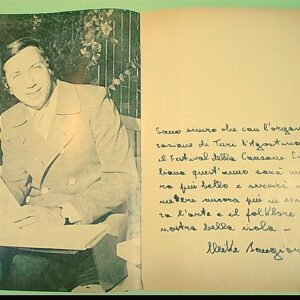 Sono sicuro che con l'organiz
zazione di Turi D'Agostino
il Festival della Canzone Si
liana quest'anno sarà an
ra più bello e servirà
mettere ancora più in evi
za l'arte e il folklore
nostra bella isola -
Mike Bongiorno